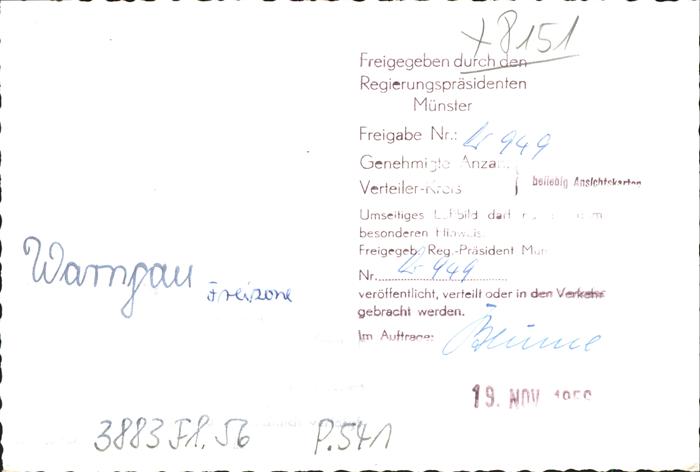 +8151
Freigegeben durch den
Regierungspräsidenten
Münster
Freigabe Nr.: Lr 949
Genehmigte Anza
Verteiler-Kreis
beliebig Ansichtskarten
Umseitiges Luftbild darf
besonderen Hinweis
Freigegeb. Reg.-Präsident Mün
Nr. Lr 949
veröffentlicht, verteilt oder in den Verkehr
gebracht werden.
Im Auftrage: Blume
Warngau Freizone
19. NOV.
3883 Fl. 56 P.541